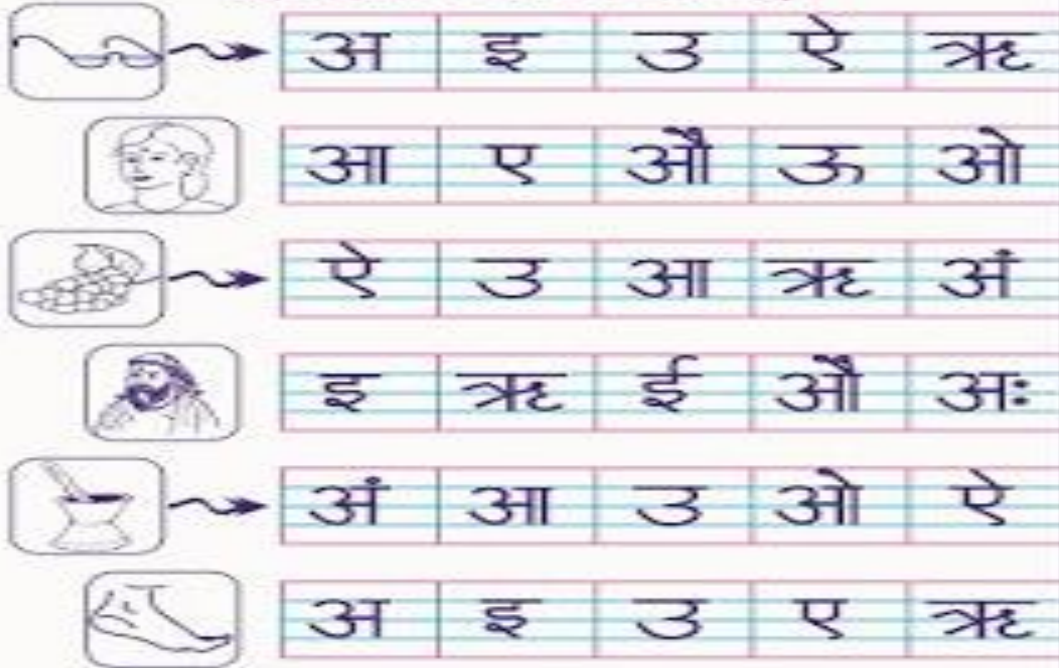 अ इ उ ऐ ऋ
आ ए औ ऊ ओ
ऐ उ आ ऋ अं
इ ऋ ई औ अः
अं आ उ ओ ऐ
अ इ उ ए ऋ